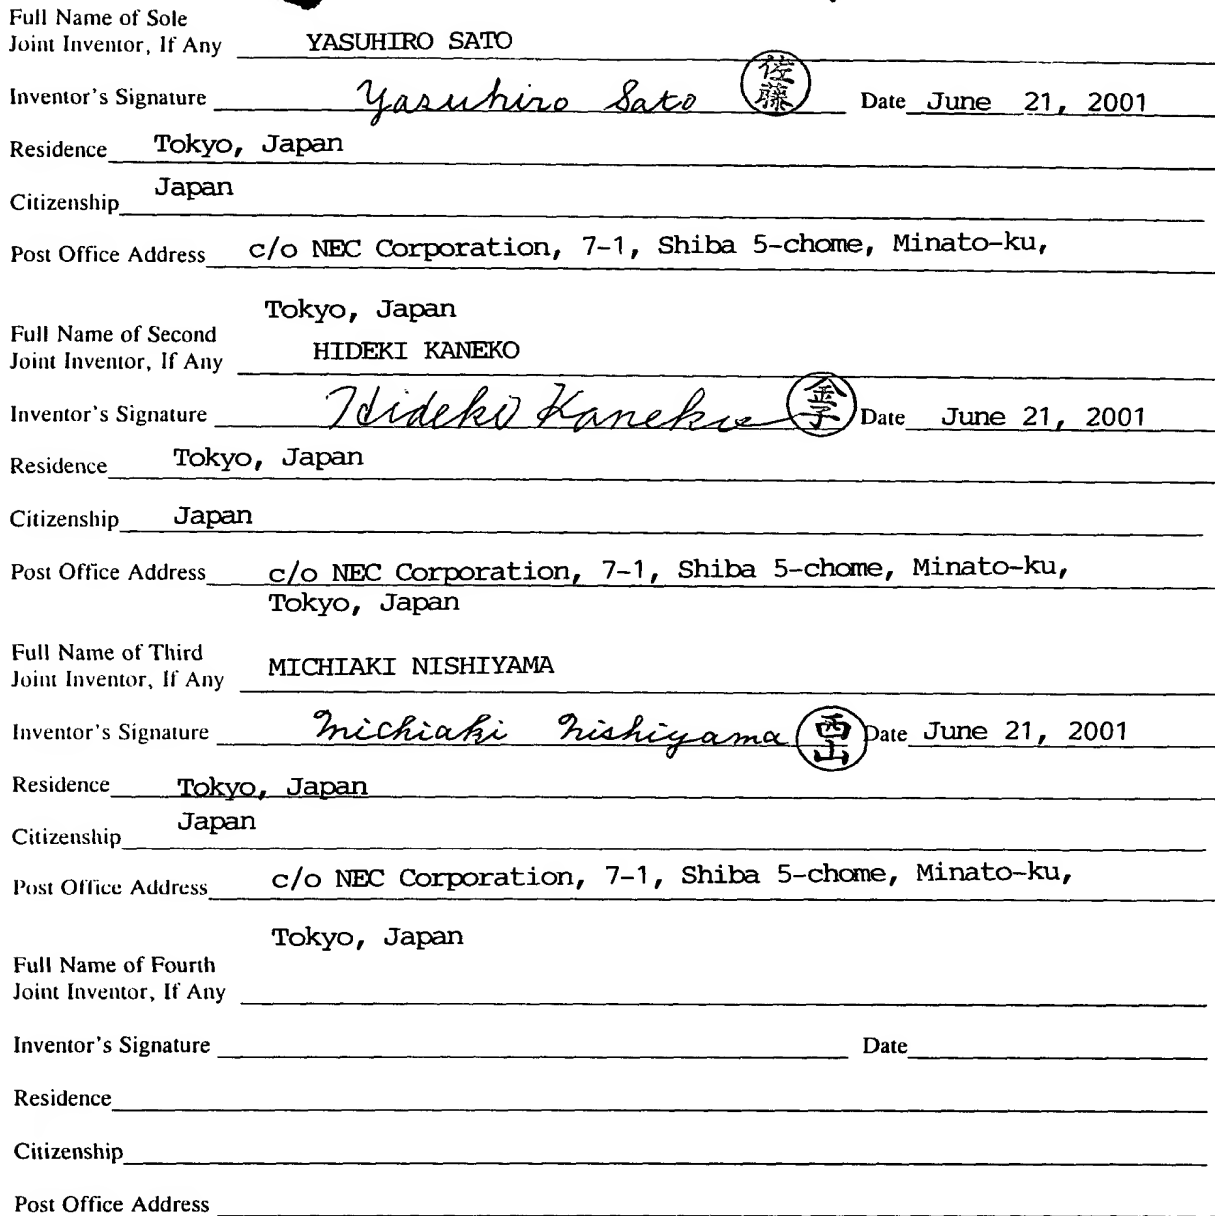 Full Name of Sole
Joint Inventor, If Any YASUHIRO SATO
Inventor's Signature Yasuhiro Sato 佐藤 Date June 21, 2001
Residence Tokyo, Japan
Citizenship Japan
Post Office Address c/o NEC Corporation, 7-1, Shiba 5-chome, Minato-ku,
Tokyo, Japan
Full Name of Second
Joint Inventor, If Any HIDEKI KANEKO
Inventor's Signature Hideki Kaneko 金子 Date June 21, 2001
Residence Tokyo, Japan
Citizenship Japan
Post Office Address c/o NEC Corporation, 7-1, Shiba 5-chome, Minato-ku,
Tokyo, Japan
Full Name of Third
Joint Inventor, If Any MICHIAKI NISHIYAMA
Inventor's Signature Michiaki Nishiyama 西山 Date June 21, 2001
Residence Tokyo, Japan
Citizenship Japan
Post Office Address c/o NEC Corporation, 7-1, Shiba 5-chome, Minato-ku,
Tokyo, Japan
Full Name of Fourth
Joint Inventor, If Any
Inventor's Signature Date
Residence
Citizenship
Post Office Address